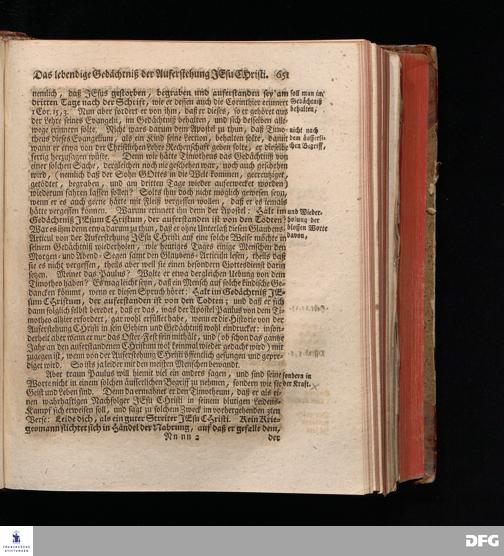 Das lebendige Gedächtniß der Auferstehung JEsu CHristi. 651
nemlich, daß JEsus gestorben, begraben und auferstanden sey am
dritten Tage nach der Schrift, wie er dessen auch die Corinthier erinnert
1 Cor. 15, 3. Nun aber fordert er von ihm, daß er dieses, so er gehöret aus
der Lehre seines Evangelii, im Gedächtniß behalten, und sich desselben alle-
wege erinnern solte. Nicht wars darum dem Apostel zu thun, daß Timo-
theus dieses Evangelium, als ein Kind seine Lection, behalten solte, damit
wann er etwa von der Christlichen Lehre Rechenschaft geben solte, er dieselbe
fertig herzusagen wüste. Denn wie hätte Timotheus das Gedächtniß von
einer solchen Sache, dergleichen noch nie geschehen war, noch auch geschehen
wird, (nemlich daß der Sohn GOttes in die Welt kommen, gecreutziget,
getödtet, begraben, und am dritten Tage wieder auferwecket worden)
wiederum fahren lassen sollen? Solts ihm doch nicht möglich gewesen seyn,
wenn er es auch gerne hätte mit Fleiß vergessen wollen, daß er es jemals
hätte vergessen können. Warum erinnert ihn denn der Apostel: Halt im
Gedächtniß JEsum CHristum, der auferstanden ist von den Todten?
War es ihm denn etwa darum zu thun, daß er ohne Unterlaß diesen Glaubens-
Articul von der Auferstehung JEsu CHristi auf eine solche Weise möchte in
seinem Gedächtniß wiederholen, wie heutiges Tages einige Menschen den
Morgen- und Abend-Segen samt den Glaubens-Articuln lesen, theils daß
sie es nicht vergessen, theils aber weil sie einen besondern Gottesdienst darin
setzen. Meinet das Paulus? Wolte er etwa dergleichen Uebung von dem
Timotheo haben? Es mag leicht seyn, daß ein Mensch auf solche kindische Ge-
dancken kömmt, wenn er diesen Spruch höret: Halt im Gedächtniß JE-
sum Christum, der auferstanden ist von den Todten; und daß er sich
dann folglich selbst beredet, daß er das, was der Apostel Paulus von dem Ti-
motheo alhier erfordert, gar wohl erfüllet habe, wenn er die Historie von der
Auferstehung CHristi in sein Gehirn und Gedächtniß wohl eindrucket: inson-
derheit aber wenn er nur das Oster-Fest fein mithält, und (ob schon das gantze
Jahr an den auferstandenen Christum wol keinmal wieder gedacht wird) mit
zugegen ist, wenn von der Auferstehung CHristi öffentlich gesungen und gepre-
diget wird. So ists ja leider mit den meisten Menschen bewandt.
Aber traun Paulus will hiemit viel ein anders sagen, und sind seine
Worte nicht in einem solchen äusserlichen Begriff zu nehmen, sondern wie sie
Geist und Leben sind. Denn da ermahnet er den Timotheum, daß er als ei-
nen wahrhaftigen Nachfolger JEsu CHristi in seinem blutigen Leidens-
Kampf sich erweisen soll, und sagt zu solchem Zweck im vorhergehenden 3ten
Verse: Leide dich, als ein guter Streiter JEsu CHristi. Kein Krie-
gesmann flichtet sich in Händel der Nahrung, auf daß er gefalle dem,
Nn nn 2 der
soll man im
Gedächtniß
behalten,
nicht nach
dem äusserli-
chen Begriff,
und Wieder-
holung der
blossen Worte
davon,
sondern in
der Kraft.
FRANCKESCHE
STIFTUNGEN
DFG